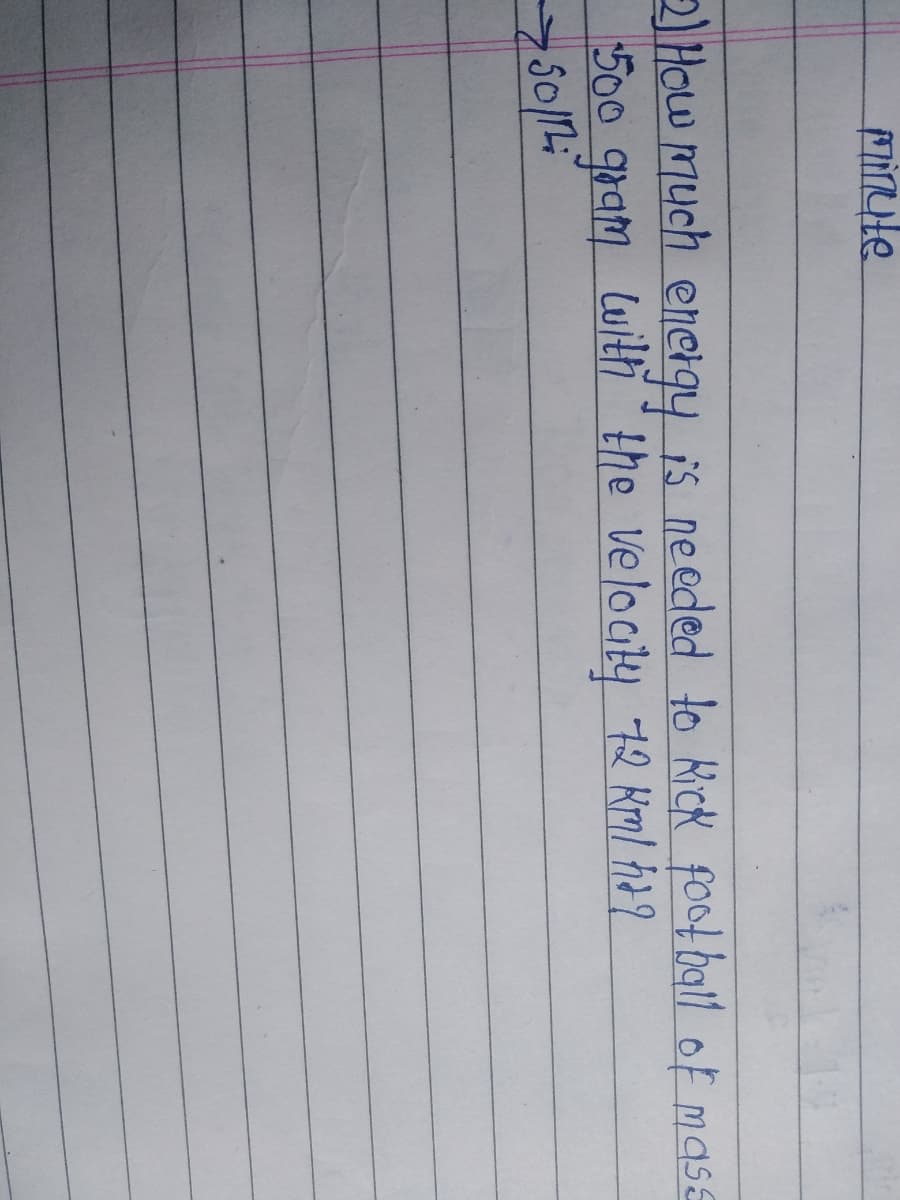 minute
2) How much energy is needed to kick football of mass
500 gram with the velocity 72 km/hr?
→ soln: